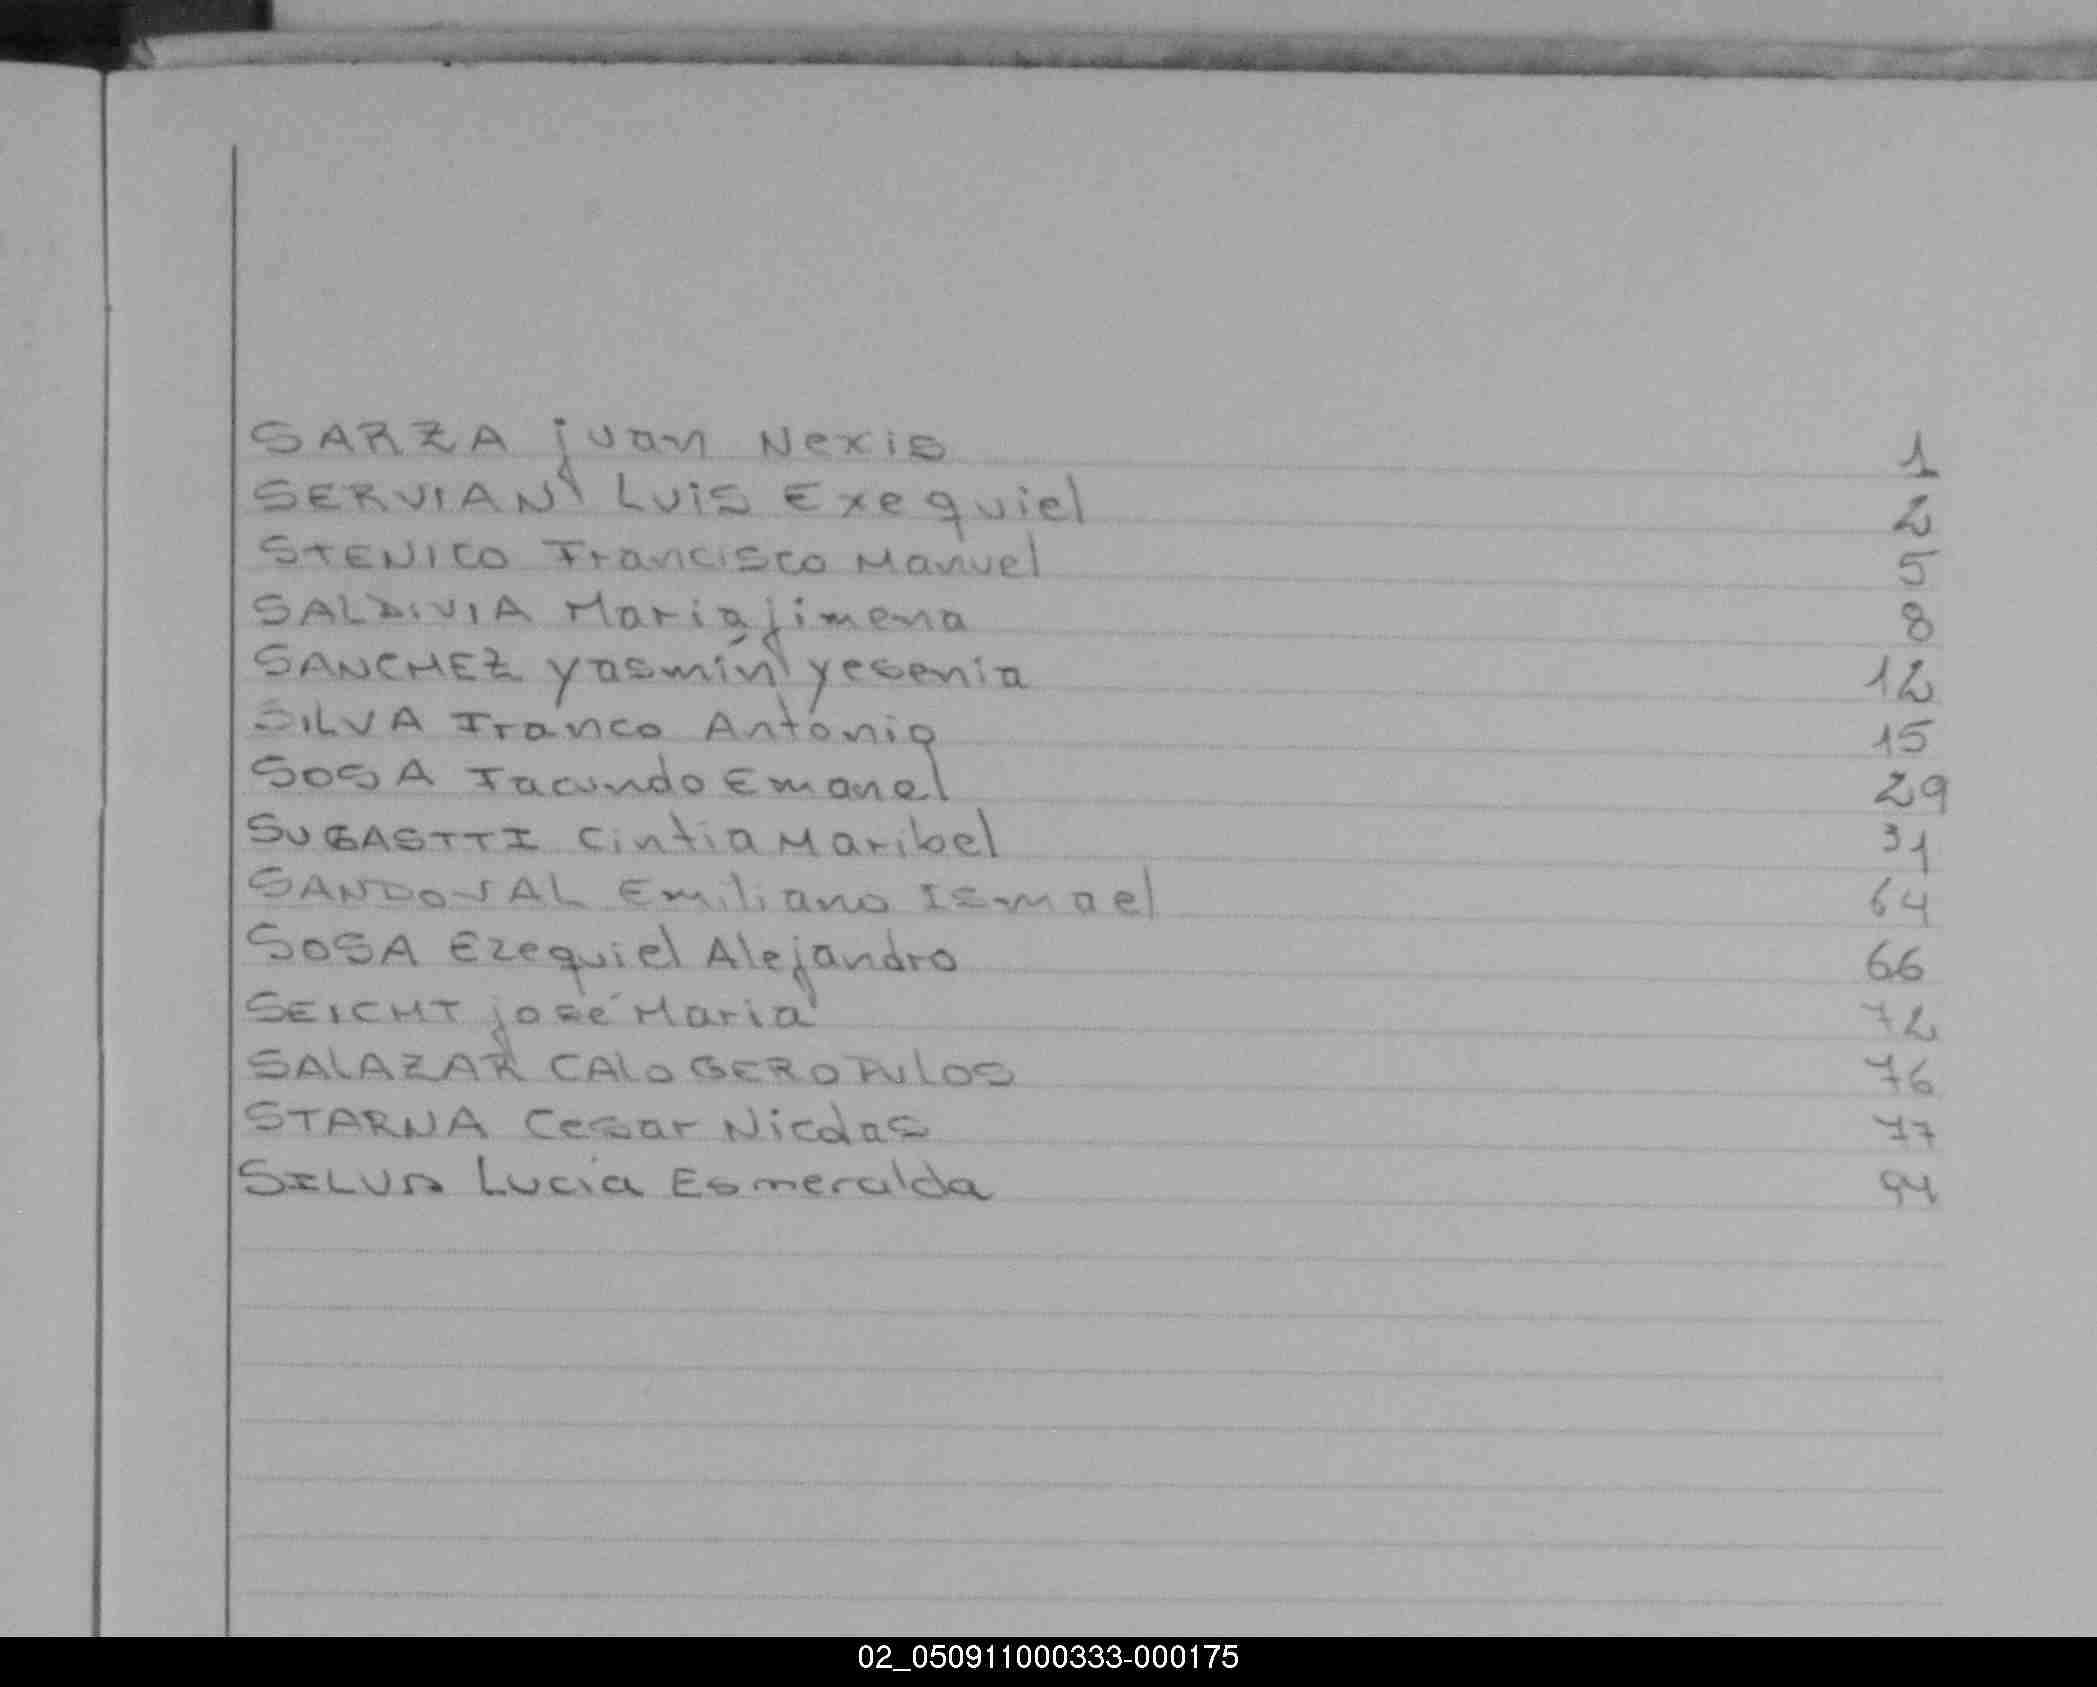 SARZA juan Nexis 1
SERVIAN Luis Exequiel 2
STENICO Francisco Manuel 5
SALDIVIA Maria jimena 8
SANCHEZ yasmín yesenia 12
SILVA Franco Antonio 15
SOSA Facundo Emanel 29
SUGASTTI Cintia Maribel 31
SANDOVAL Emiliano Ismael 64
SOSA Ezequiel Alejandro 66
SEICHT josé Maria 72
SALAZAR CALOGEROPULOS 76
STARNA Cesar Nicolas 77
SILVA Lucia Esmeralda 94
02_050911000333-000175